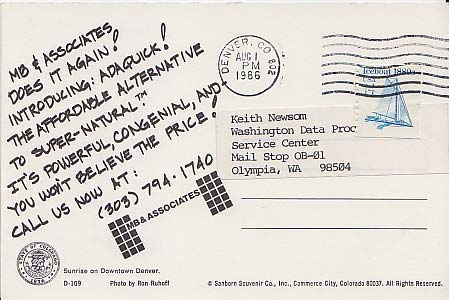 MB & ASSOCIATES
DOES IT AGAIN!
INTRODUCING: ADAQUICK!
THE AFFORDABLE ALTERNATIVE
TO SUPER-NATURAL.™
IT'S POWERFUL, CONGENIAL, AND
YOU WON'T BELIEVE THE PRICE!
CALL US NOW AT:
(303) 794-1740
MB & ASSOCIATES
DENVER, CO 802
AUG 1
PM
1986
Iceboat 1880s
USA
Keith Newsom
Washington Data Proc
Service Center
Mail Stop OB-01
Olympia, WA 98504
STATE OF COLORADO
1876
Sunrise on Downtown Denver.
D-109 Photo by Ron Ruhoff
© Sanborn Souvenir Co., Inc., Commerce City, Colorado 80037. All Rights Reserved.